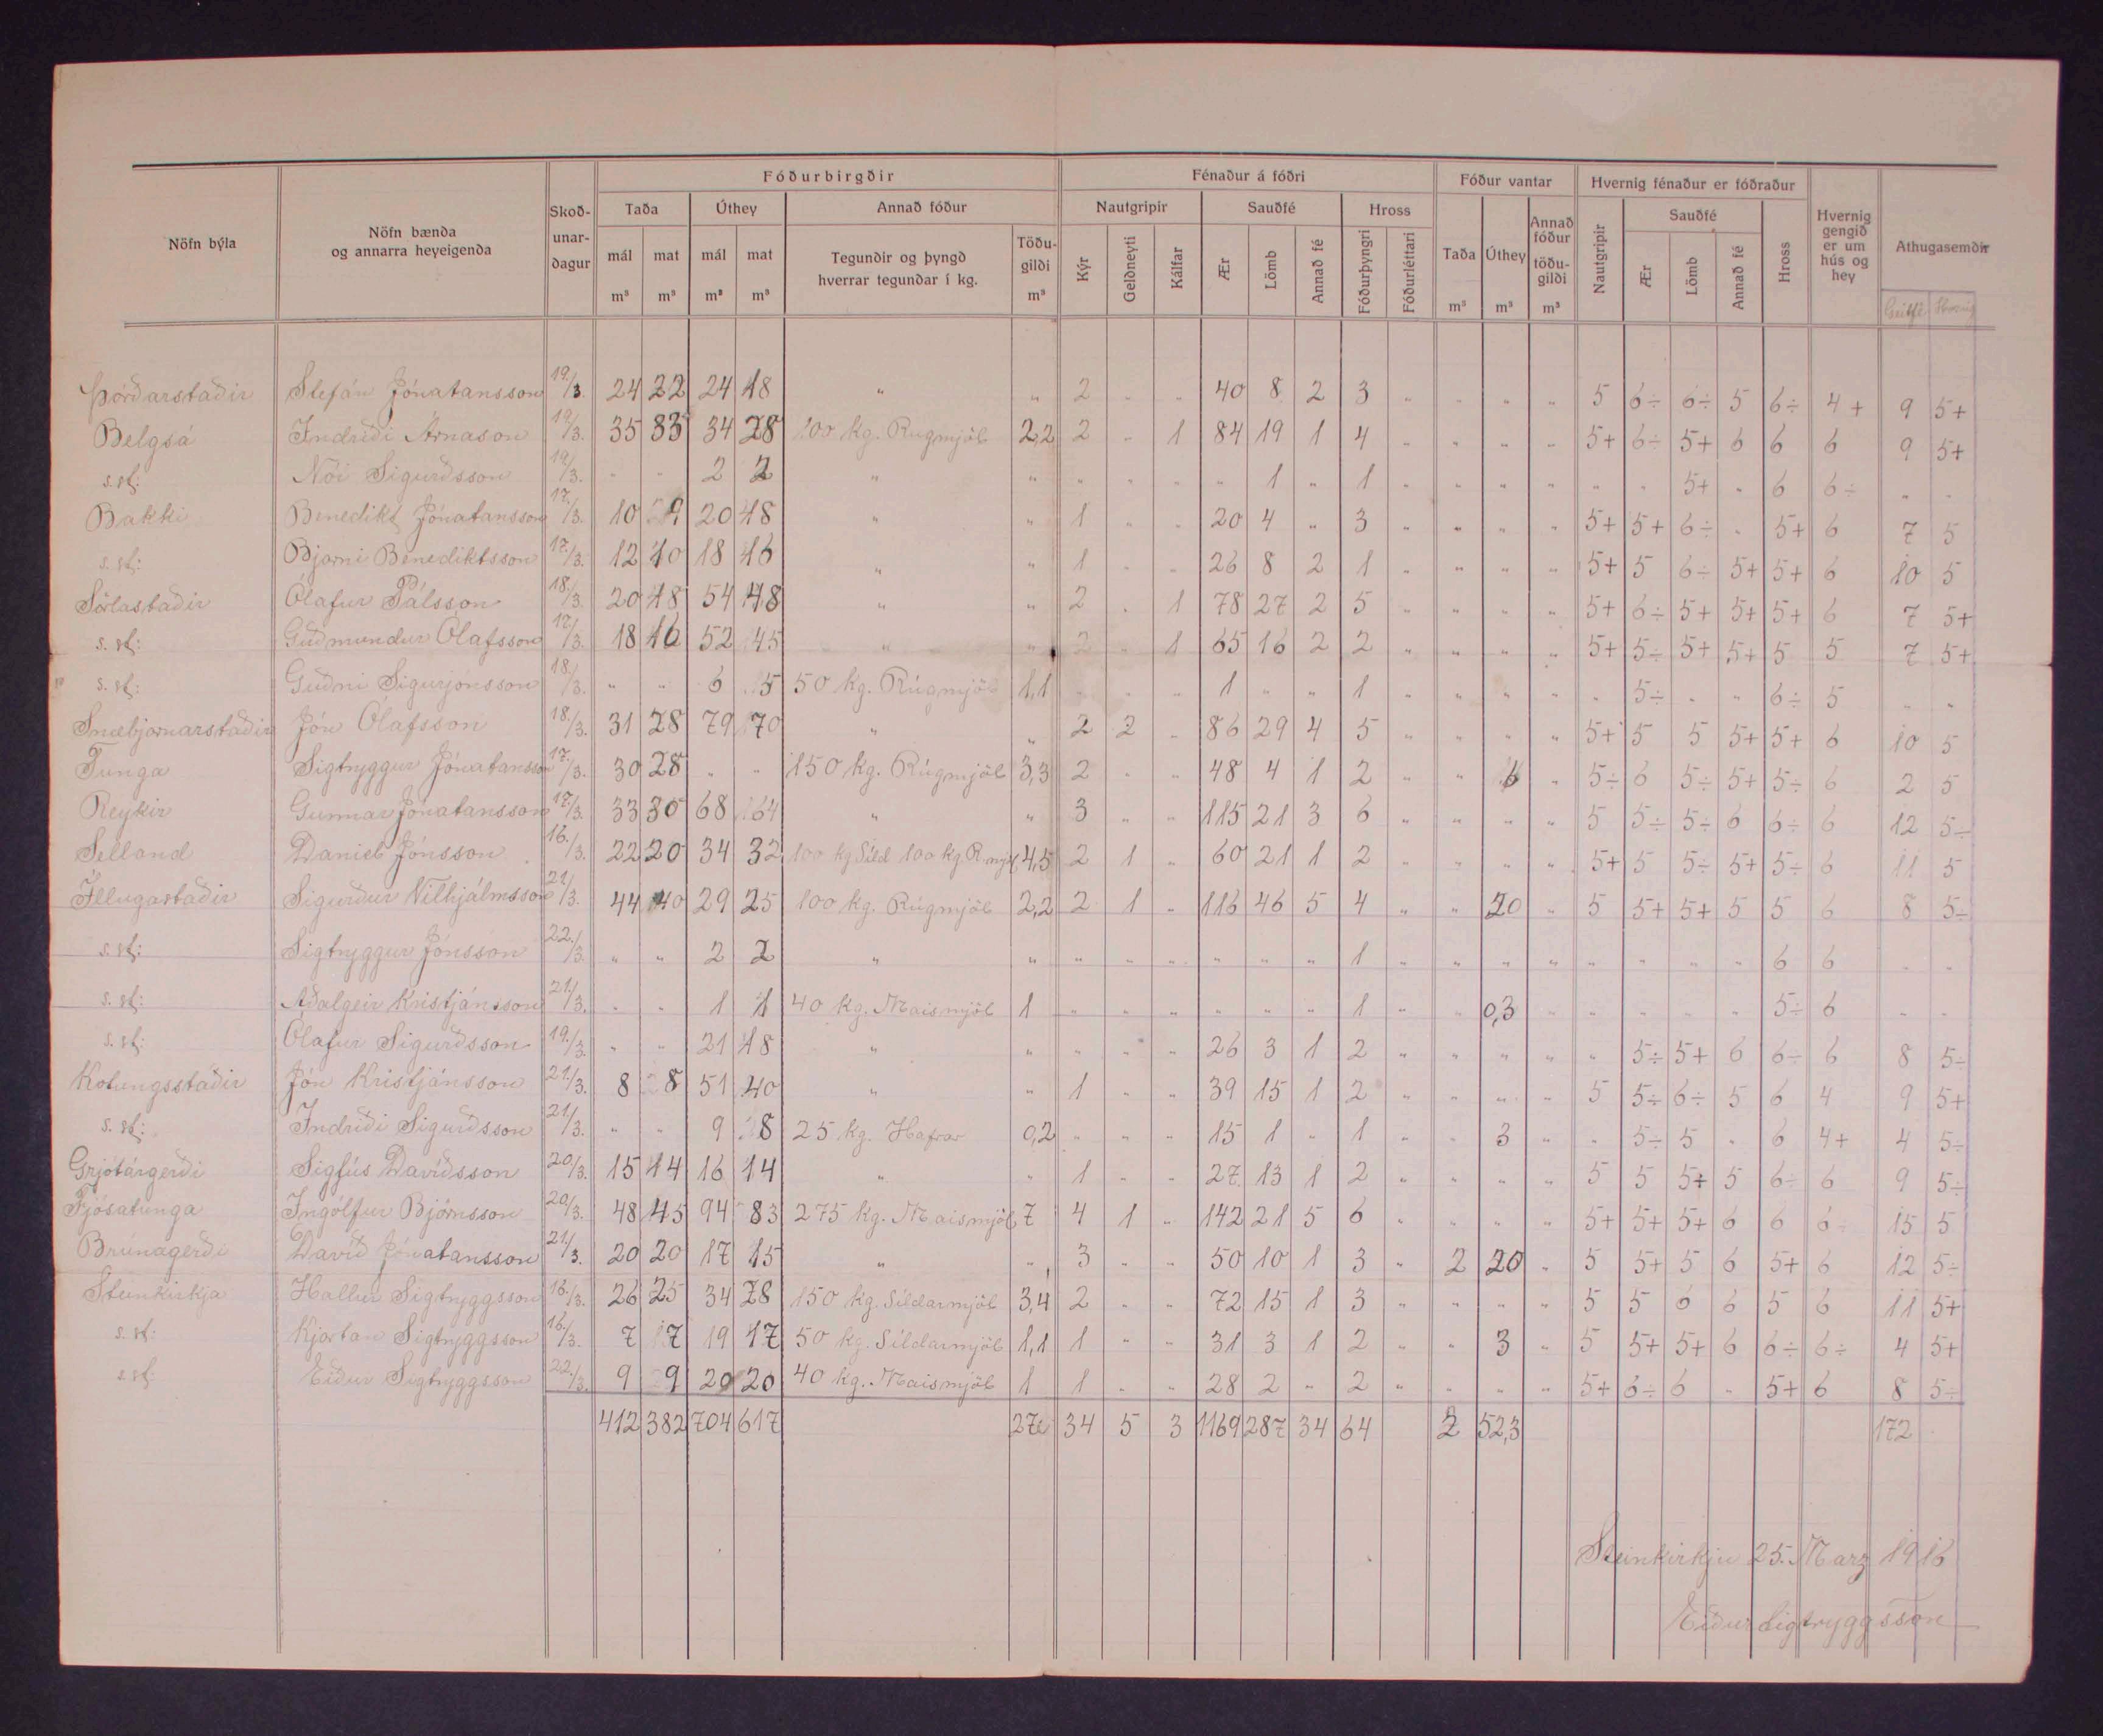 Fóðurbirgðir Fénaður á fóðri Fóður vantar Hvernig fénaður er fóðraður
Nöfn býla Nöfn bænda og annarra heyeigenda Skoðunardagur Taða Úthey Annað fóður Nautgripir Sauðfé Hross Taða Úthey Annað fóður töðugildi Nautgripir Sauðfé Hross Hvernig gengið er um hús og hey Athugasemdir
mál mat mál mat Tegundir og þyngd hverrar tegundar í kg. Töðugildi Kýr Geldneyti Kálfar Ær Lömb Annað fé Fóðurþyngri Fóðurléttari Ær Lömb Annað fé
m³ m³ m³ m³ m³ m³ m³ m³
Þórðarstaðir Stefán Jónatansson 19./3. 24 22 24 18 " " 2 " " 40 8 2 3 " " " " 5 6÷ 6÷ 5 6÷ 4+ 9 5+
Belgsá Indriði Árnason 19/3. 35 33 34 28 100 kg. Rúgmjöl 2,2 2 " 1 84 19 1 4 " " " " 5+ 6÷ 5+ 6 6 6 9 5+
s. st: Nói Sigurðsson 19/3. " " 2 2 " " " " " " 1 " 1 " " " " " " 5+ " 6 6÷ " "
Bakki Benedikt Jónatansson 17./3. 10 9 20 18 " " 1 " " 20 4 " 3 " " " " 5+ 5+ 6÷ " 5+ 6 7 5
s. st: Bjarni Benediktsson 17./3. 12 10 18 16 " " 1 " " 26 8 2 1 " " " " 5+ 5 6÷ 5+ 5+ 6 10 5
Sörlastaðir Ólafur Pálsson 18./3. 20 18 54 48 " " 2 " 1 78 27 2 5 " " " " 5+ 6÷ 5+ 5+ 5+ 6 7 5+
s. st: Guðmundur Ólafsson 17./3. 18 16 52 45 " " 2 " 1 65 16 2 2 " " " " 5+ 5÷ 5+ 5+ 5 5 7 5+
s. st: Guðni Sigurjónsson 18./3. " " 6 5 50 kg. Rúgmjöl 1,1 " " " 1 " " 1 " " " " " 5÷ " " 6÷ 5 " "
Snæbjarnarstaðir Jón Ólafsson 18./3. 31 28 79 70 " " 2 2 " 86 29 4 5 " " " " 5+ 5 5 5+ 5+ 6 10 5
Tunga Sigtryggur Jónatansson 17./3. 30 28 " " 150 kg. Rúgmjöl 3,3 2 " " 48 4 1 2 " " 6 " 5÷ 6 5÷ 5+ 5÷ 6 2 5
Reykir Gunnar Jónatansson 17./3. 33 30 68 64 " " 3 " " 115 21 3 6 " " " " 5 5÷ 5÷ 6 6÷ 6 12 5÷
Selland Daníel Jónsson 16./3. 22 20 34 32 100 kg Síld 100 kg. R.mjöl 4,5 2 1 " 60 21 1 2 " " " " 5+ 5 5÷ 5+ 5÷ 6 11 5
Illugastaðir Sigurður Vilhjálmsson 21/3. 44 40 29 25 100 kg. Rúgmjöl 2,2 2 1 " 116 46 5 4 " " 20 " 5 5+ 5+ 5 5 6 8 5÷
s. st: Sigtryggur Jónsson 22./3. " " 2 2 " " " " " " " " 1 " " " " " " " " 6 6 " "
s. st: Aðalgeir Kristjánsson 21./3. " " 1 1 40 kg. Maismjöl 1 " " " " " " 1 " " 0,3 " " " " " 5÷ 6 " "
s. st: Ólafur Sigurðsson 19./3. " " 21 18 " " " " " 26 3 1 2 " " " " " 5÷ 5+ 6 6÷ 6 8 5÷
Kotungsstaðir Jón Kristjánsson 21./3. 8 8 51 40 " " 1 " " 39 15 1 2 " " " " 5 5÷ 6÷ 5 6 4 9 5+
s. st: Indriði Sigurðsson 21/3. " " 9 8 25 kg. Hafrar 0,2 " " " 15 1 " 1 " " 3 " " 5÷ 5 " 6 4+ 4 5÷
Grjótárgerði Sigfús Davíðsson 20/3. 15 14 16 14 " " 1 " " 27 13 1 2 " " " " 5 5 5+ 5 6÷ 6 9 5÷
Fjósatunga Ingólfur Björnsson 20/3. 48 45 94 83 275 kg. Maismjöl 7 4 1 " 142 21 5 6 " " " " 5+ 5+ 5+ 6 6 6÷ 15 5
Brúnagerði Davíð Jónatansson 21/3. 20 20 17 15 " " 3 " " 50 10 1 3 " 2 20 " 5 5+ 5 6 5+ 6 12 5÷
Steinkirkja Hallur Sigtryggsson 16./3. 26 25 34 28 150 kg. Síldarmjöl 3,4 2 " " 72 15 1 3 " " " " 5 5 6 6 5 6 11 5+
s. st: Kjartan Sigtryggsson 16./3. 7 7 19 17 50 kg. Síldarmjöl 1,1 1 " " 31 3 1 2 " " 3 " 5 5+ 5+ 6 6÷ 6÷ 4 5+
s. st: Eiður Sigtryggsson 22./3. 9 9 20 20 40 kg. Maismjöl 1 1 " " 28 2 " 2 " " " " 5+ 6÷ 6 " 5+ 6 8 5÷
412 382 704 617 34 5 3 1169 287 34 64 2 52,3 172
Steinkirkju 25. Marz 1916
Eiður Sigtryggsson